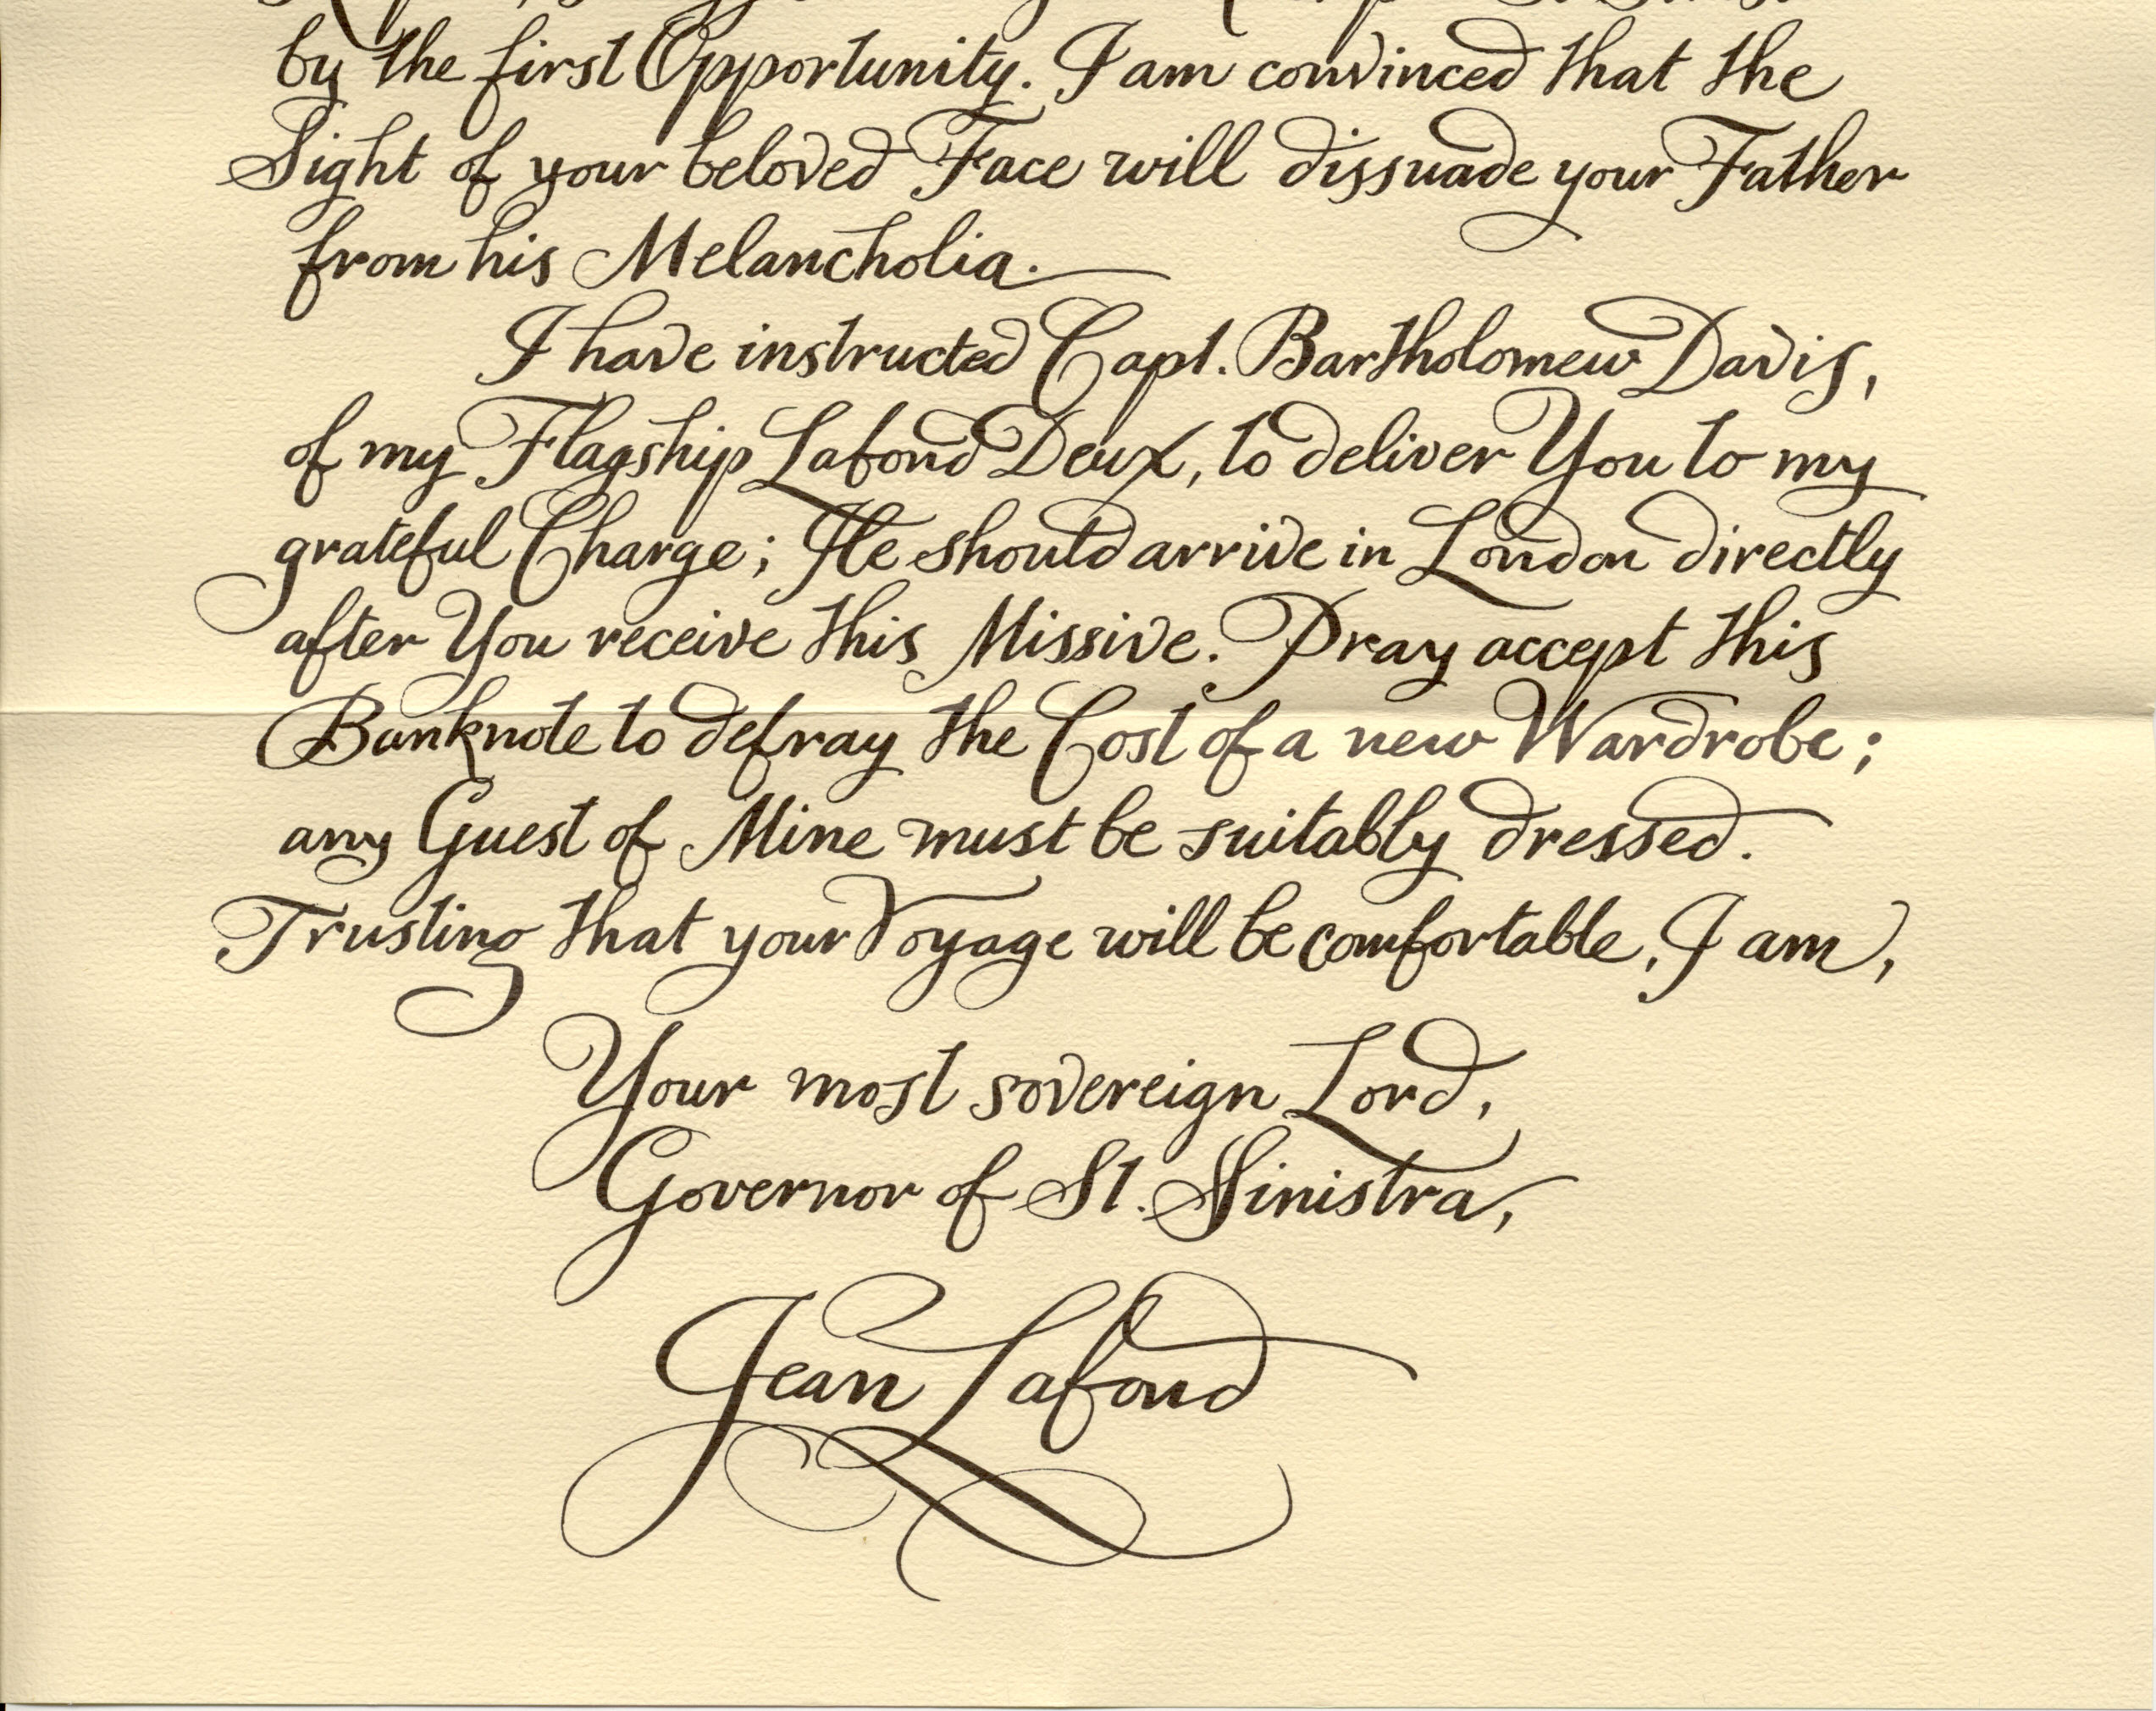 by the first Opportunity. I am convinced that the
Sight of your beloved Face will dissuade your Father
from his Melancholia.
I have instructed Capt. Bartholomew Davis,
of my Flagship Lafond Deux, to deliver You to my
grateful Charge; He should arrive in London directly
after You receive this Missive. Pray accept this
Banknote to defray the Cost of a new Wardrobe;
any Guest of Mine must be suitably dressed.
Trusting that your Voyage will be comfortable, I am,
Your most sovereign Lord,
Governor of St. Sinistra,
Jean Lafond